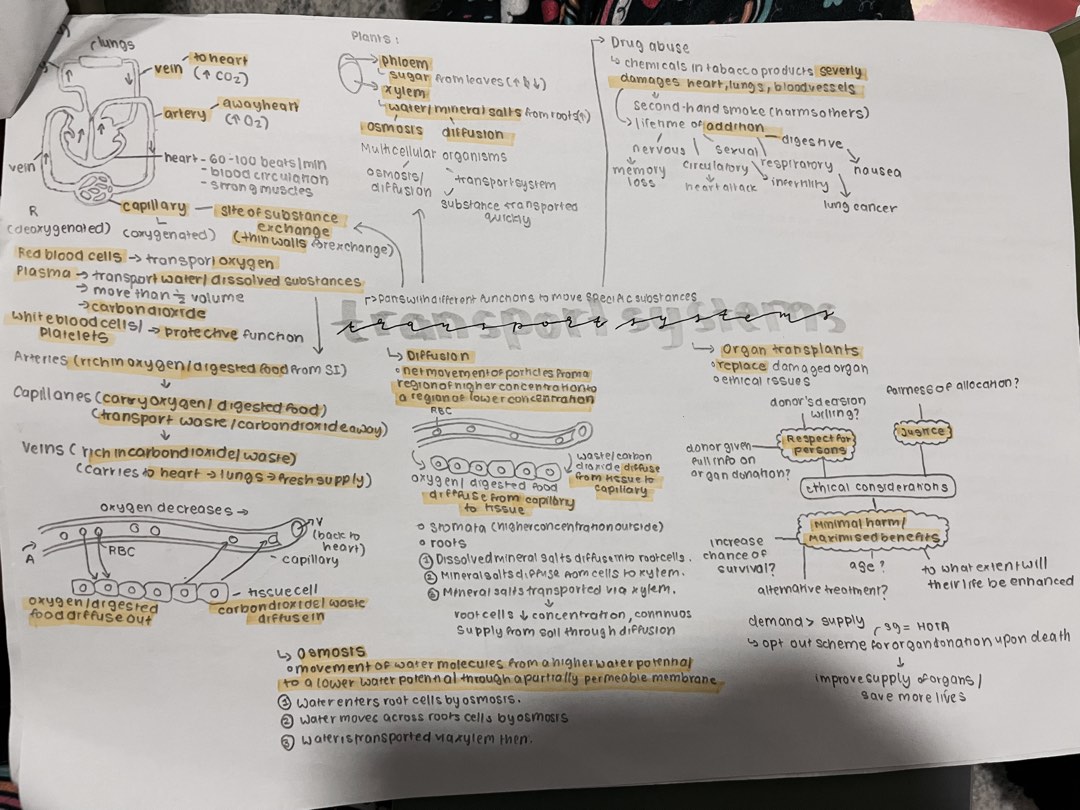 lungs
vein
to heart
(↑ CO2)
artery
away heart
(↑ O2)
vein
heart - 60-100 beats/min
- blood circulation
- strong muscles
capillary — site of substance
exchange
(thin walls for exchange)
R
(deoxygenated) (oxygenated)
Red blood cells → transport oxygen
Plasma → transport water/dissolved substances
→ more than ½ volume
→ carbon dioxide
White blood cells/ → protective function
Platelets
Arteries (rich in oxygen/digested food from SI)
↓
Capillaries (carry oxygen/digested food)
(transport waste/carbon dioxide away)
↓
Veins (rich in carbon dioxide/waste)
(carries to heart → lungs → fresh supply)
oxygen decreases →
V
(back to
heart)
A
RBC
- capillary
- tissue cell
oxygen/digested
food diffuse out
carbon dioxide/waste
diffuse in
Plants:
phloem
sugar from leaves (↑↓)
xylem
water/mineral salts from roots (↑)
osmosis diffusion
Multicellular organisms
osmosis/
diffusion
transport system
substance transported
quickly
Drug abuse
↳ chemicals in tobacco products severly
damages heart, lungs, blood vessels
second-hand smoke (harms others)
lifetime of addition
nervous
memory
loss
circulatory
heart attack
sexual
infertility
respiratory
lung cancer
digestive
nousea
parts with different functions to move specific substances
transport systems
↳ Diffusion
o net movement of particles from a
region of higher concentration to
a region of lower concentration
RBC
oxygen/digested food
diffuse from capillary
to tissue
waste/carbon
dioxide diffuse
from tissue to
capillary
o Stomata (higher concentration outside)
o roots
① Dissolved mineral salts diffuse into root cells.
② Mineral salts diffuse from cells to xylem.
③ Mineral salts transported via xylem.
↓
root cells ↓ concentration, continuos
supply from soil through diffusion
↳ Organ transplants
o replace damaged organ
o ethical issues
donor's decision
willing?
Respect for
persons
donor given
full info on
organ donation?
fairness of allocation?
Justice
ethical considerations
Minimal harm/
Maximised benefits
increase
chance of
survival?
alternative treatment?
age?
to what extent will
their life be enhanced
demand > supply
sg = HOTA
↳ opt out scheme for organ donation upon death
↓
improve supply of organs/
save more lives
↳ Osmosis
o movement of water molecules from a higher water potential
to a lower water potential through a partially permeable membrane
① Water enters root cells by osmosis.
② Water moves across roots cells by osmosis
③ Water is transported via xylem then.